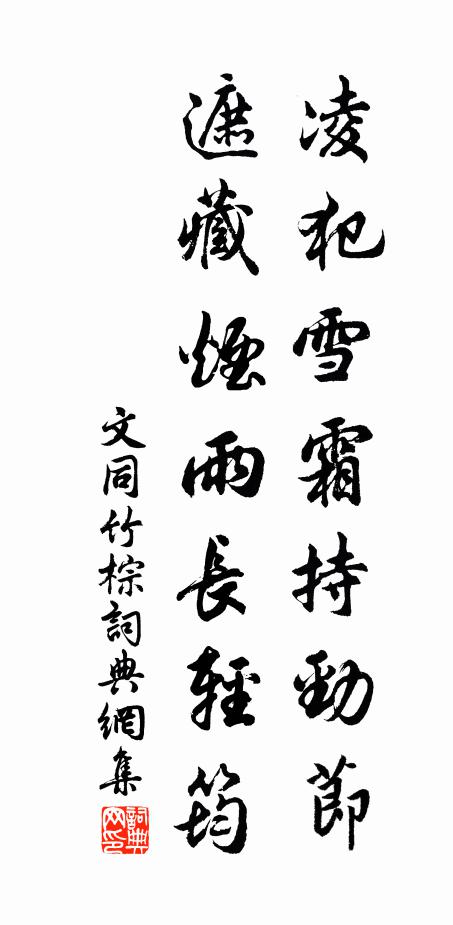 凌犯雪霜持勁節
遮藏煙雨長輕筠
文同竹棕詞典網集
詞典网印